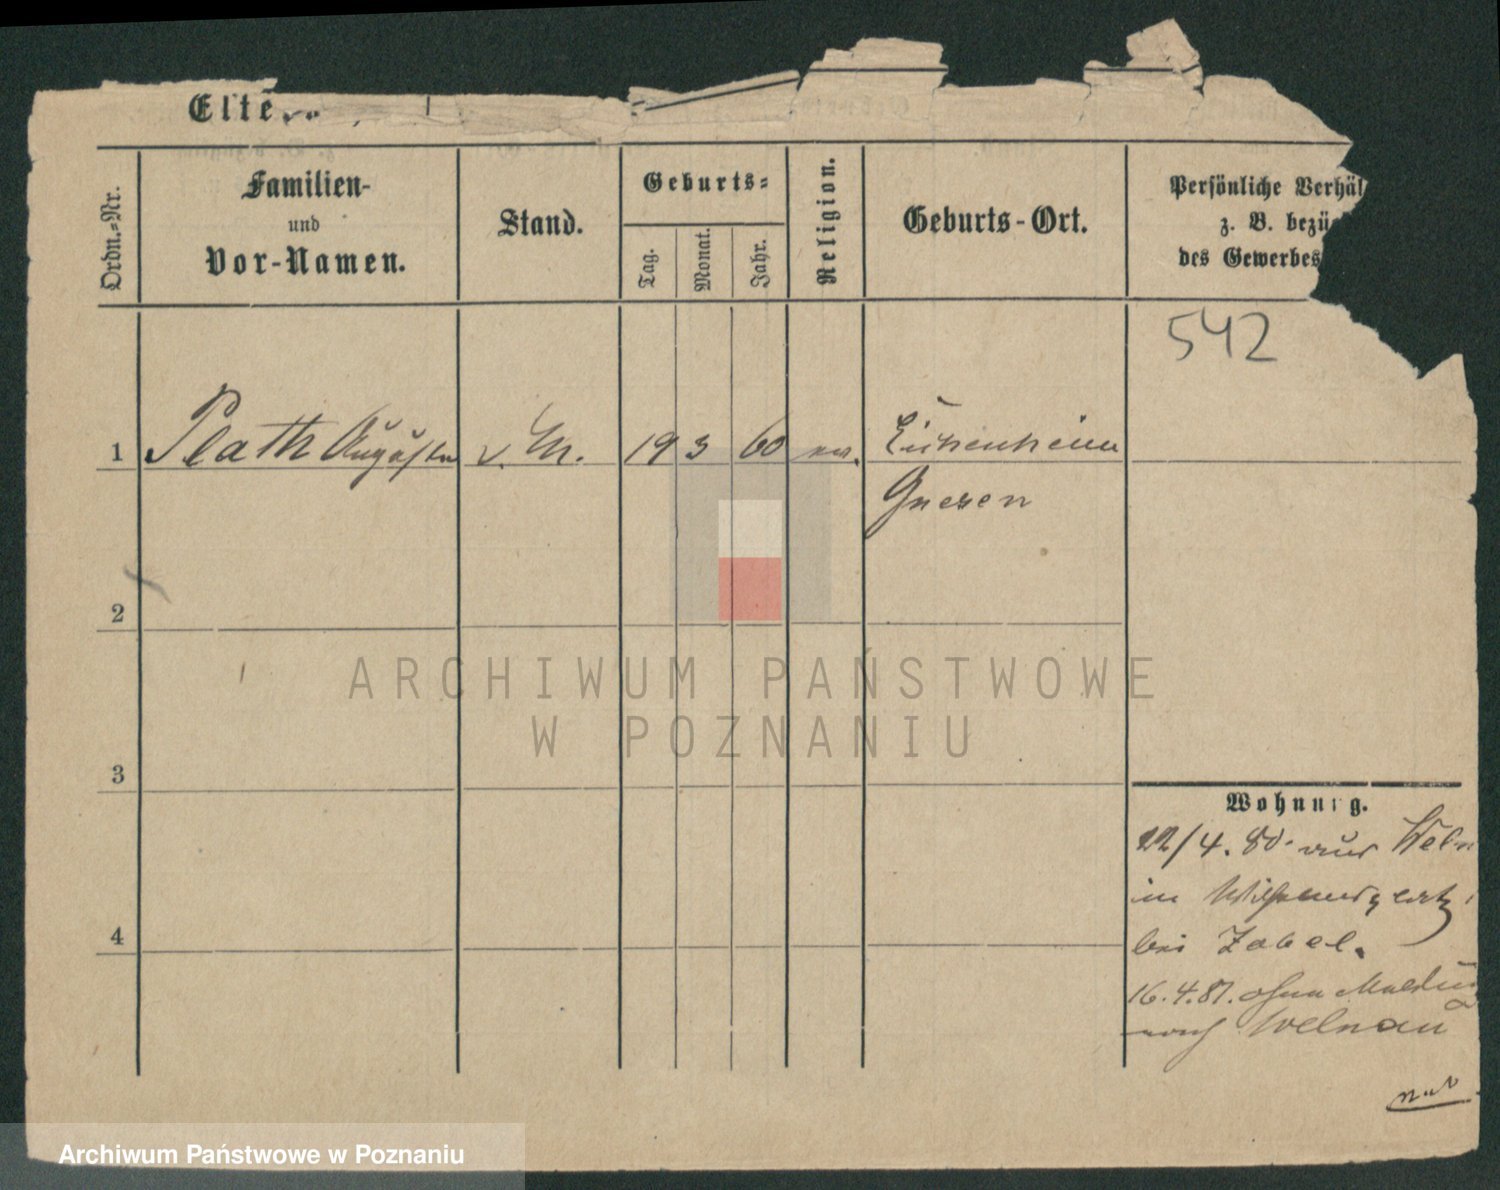 Elte
Ordn.-Nr.
Familien-
und
Vor-Namen.
Stand.
Geburts-
Tag.
Monat.
Jahr.
Religion.
Geburts-Ort.
Persönliche Verhäl
z. B. bezü
des Gewerbes
542
1 Plath 19 3 60 ev.
Gnesen
2
ARCHIWUM PAŃSTWOWE
W POZNANIU
3
Wohnung.
22/4. 80. aus Weln
in
bei Zabel.
16.4.81. ohne Meldung
nach Welnau
4
Archiwum Państwowe w Poznaniu